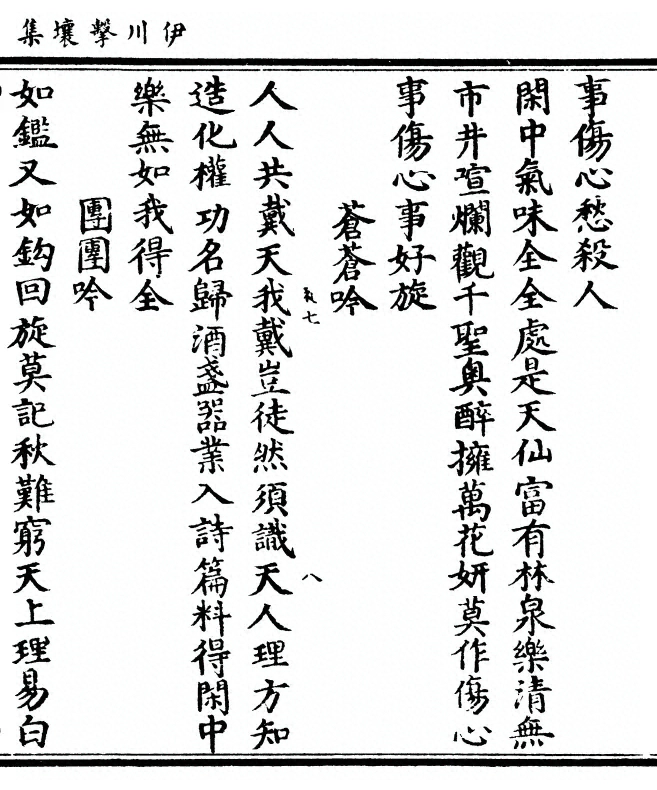 伊川擊壤集
事傷心愁殺人
閑中氣味全全處是天仙富有林泉樂清無
市井喧爛觀千聖奧醉擁萬花妍莫作傷心
事傷心事好旋
蒼蒼吟
人人共戴天我戴豈徒然須識天人理方知
造化權功名歸酒盞器業入詩篇料得閑中
樂無如我得全
團團吟
如鑑又如鈎回旋莫記秋難窮天上理易白
七
八